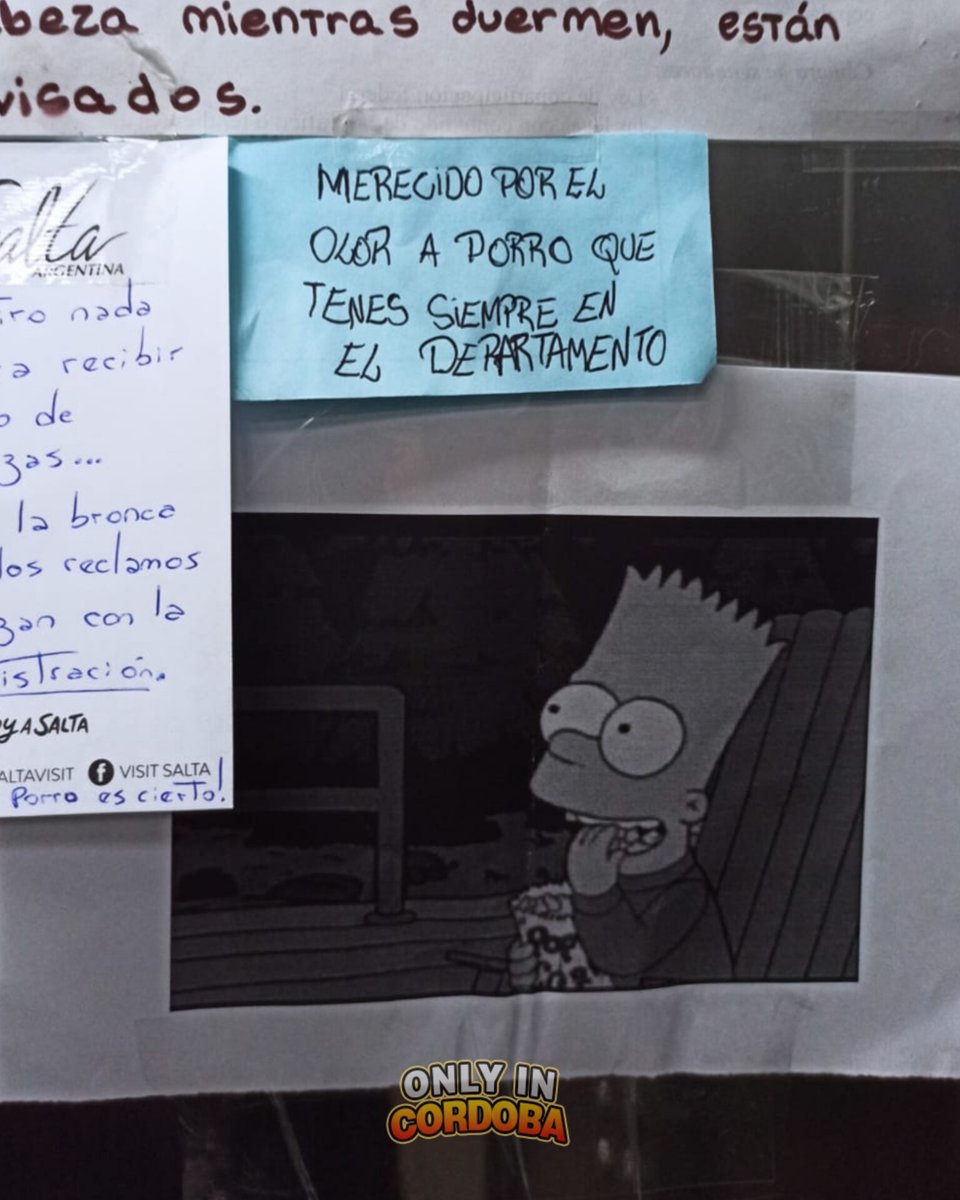 beza mientras duermen, están
visados.
MERECIDO POR EL
OLOR A PORRO QUE
TENES SIEMPRE EN
EL DEPARTAMENTO
Salta
ARGENTINA
nada
recibir
de
...
la bronca
los reclamos
con la
istración.
Y A SALTA
ALTAVISIT f VISIT SALTA
Porro es cierto!
POP
ONLY IN
CORDOBA